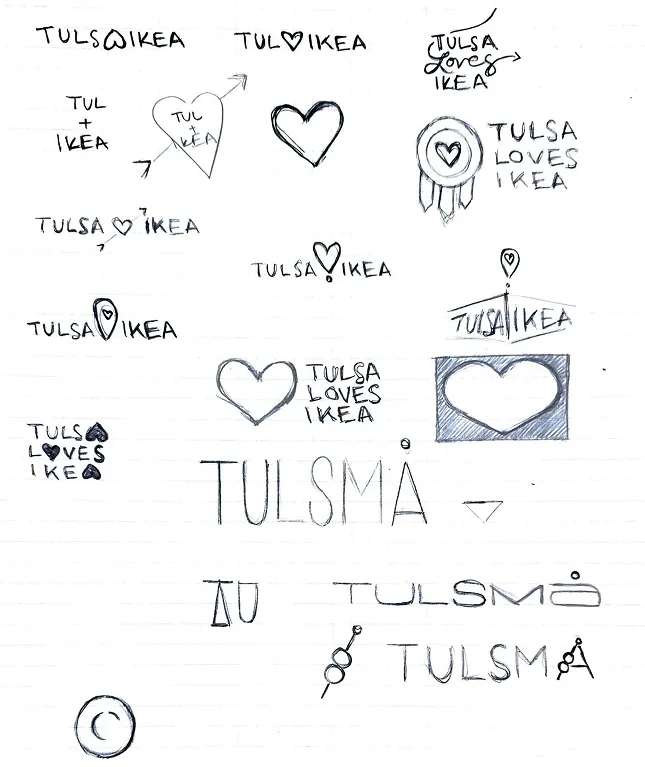 TULS IKEA
TUL♡IKEA
TULSA
Loves
IKEA
TUL
+
IKEA
TUL
+
IKEA
TULSA
LOVES
IKEA
TULSA ♡ IKEA
TULSA IKEA
TULSA IKEA
TULSA IKEA
TULSA
LOVES
IKEA
TULS
L♥VES
IKE
TULSMÅ
TU
TULSMÅ
TULSMÅ